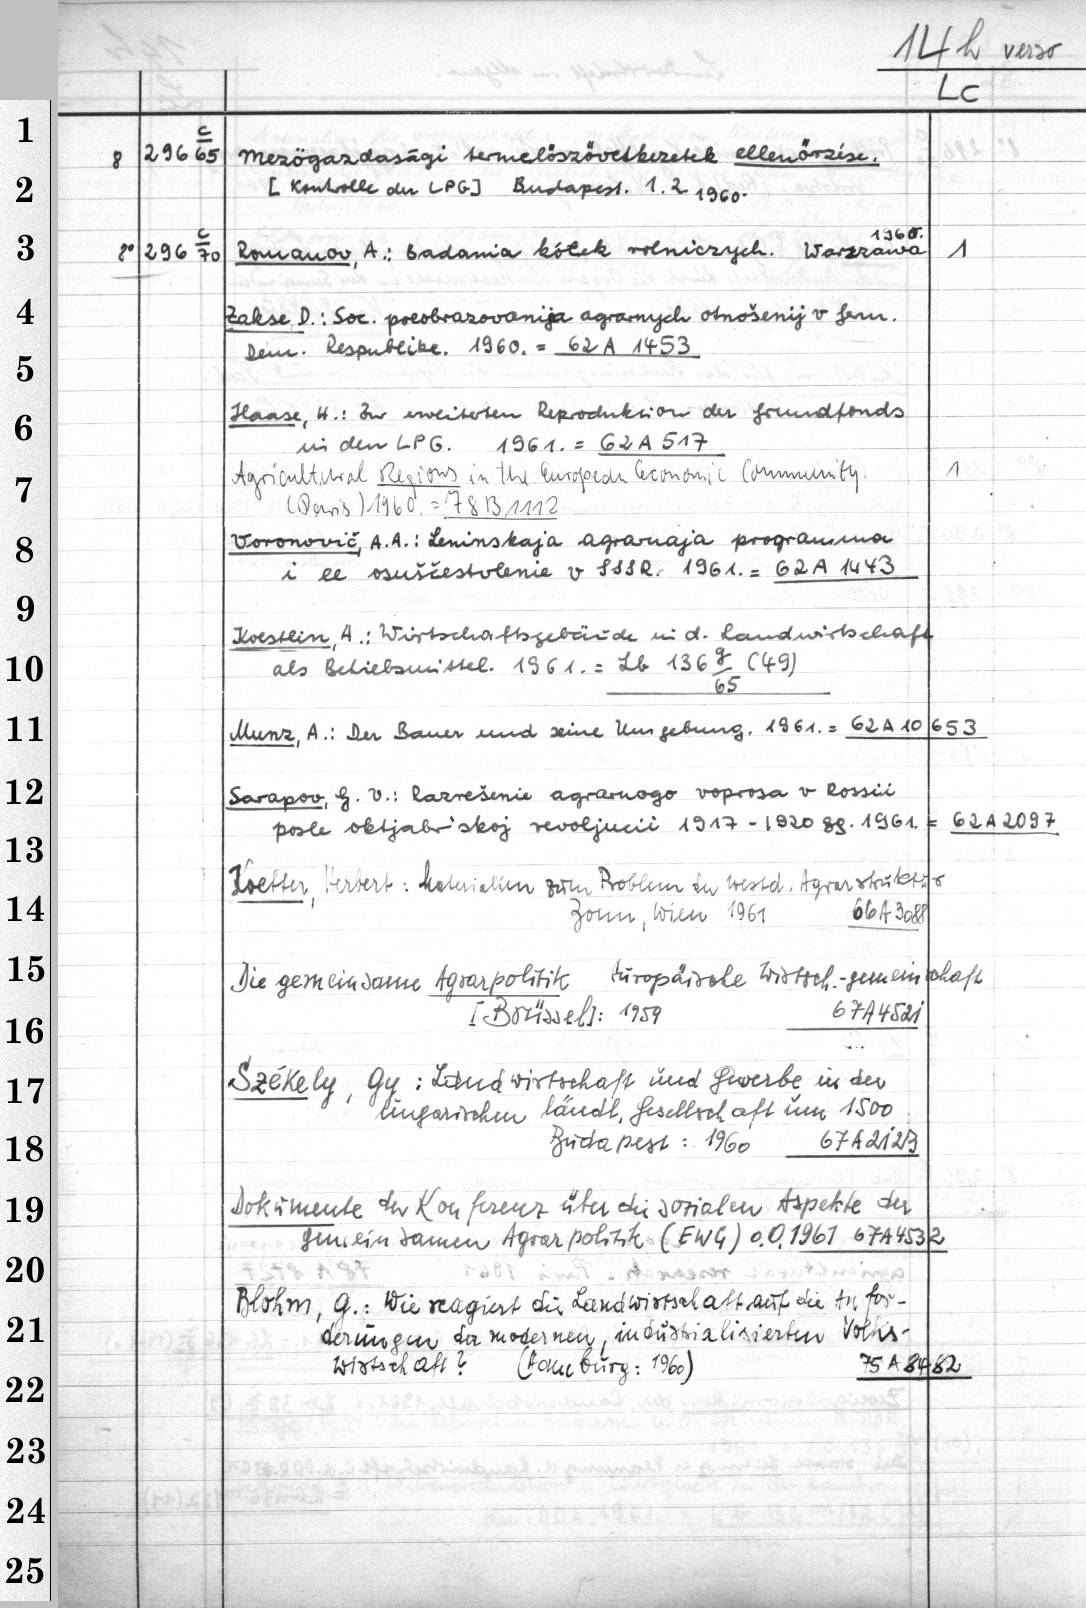 14h verso
Lc
1
8 296 c/65 Mezőgazdasági termelőszövetkezetek ellenőrzése.
2
[Kontrolle der LPG] Budapest. 1.2 1960.
3
8° 296 c/70 Romanov, A.: Badania kółek rolniczych. Warszawa 1960. 1
4
Zakse, D.: Soc. preobrazovanija agrarnych otnošenij v Germ.
5
Dem. Respublike. 1960. = 62 A 1453
6
Haase, H.: Zur erweiterten Reproduktion der Grundfonds
in den LPG. 1961. = 62 A 517
Agricultural Regions in the European Economic Community. 1
7
(Paris) 1960. = 78 B 1112
8
Voronovič, A.A.: Leninskaja agrarnaja programma
i ee osuščestvlenie v SSSR. 1961. = 62 A 1443
9
Koestlin, A.: Wirtschaftsgebäude in d. Landwirtschaft
10
als Betriebsmittel. 1961. = Lb 136 g/65 (49)
11
Munz, A.: Der Bauer und seine Umgebung. 1961. = 62 A 10 653
12
Sarapov, G. V.: Razrešenie agrarnogo voprosa v Rossii
posle oktjabr'skoj revoljucii 1917 - 1920 gg. 1961. = 62 A 2097
13
Koetter, Herbert: Materialien zum Problem der westd. Agrarstruktur
14
Bonn, Wien 1961 66 A 3088
15
Die gemeinsame Agrarpolitik Europäische Wirtsch.-gemeinschaft
16
[Brüssel]: 1959 67 A 4521
17
Székely, Gy: Landwirtschaft und Gewerbe in der
ungarischen ländl. Gesellschaft um 1500
18
Budapest: 1960 67 A 2123
19
Dokumente der Konferenz über die sozialen Aspekte der
gemeinsamen Agrarpolitik (EWG) o.O. 1961 67 A 4532
20
Blohm, G.: Wie reagiert die Landwirtschaft auf die Anfor-
21
derungen der modernen, industrialisierten Volks-
wirtschaft? (Hamburg: 1960) 75 A 8462
22
23
24
25